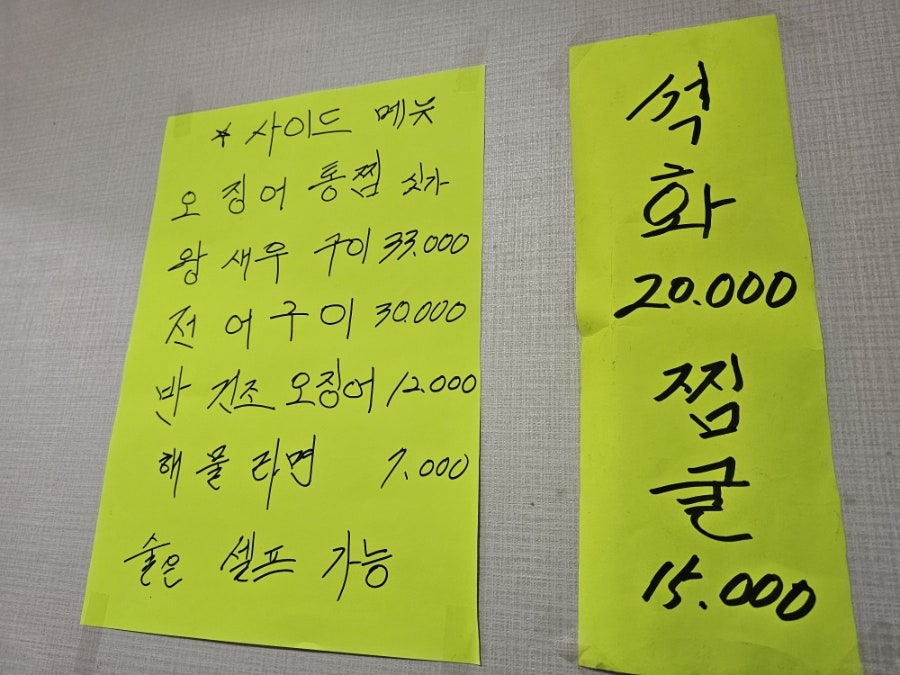 * 사이드 메뉴
오징어 통찜 싯가
왕새우 구이 33.000
전어구이 30.000
반건조 오징어 12.000
해물라면 7.000
술은 셀프 가능
석
화
20.000
찜
굴
15.000